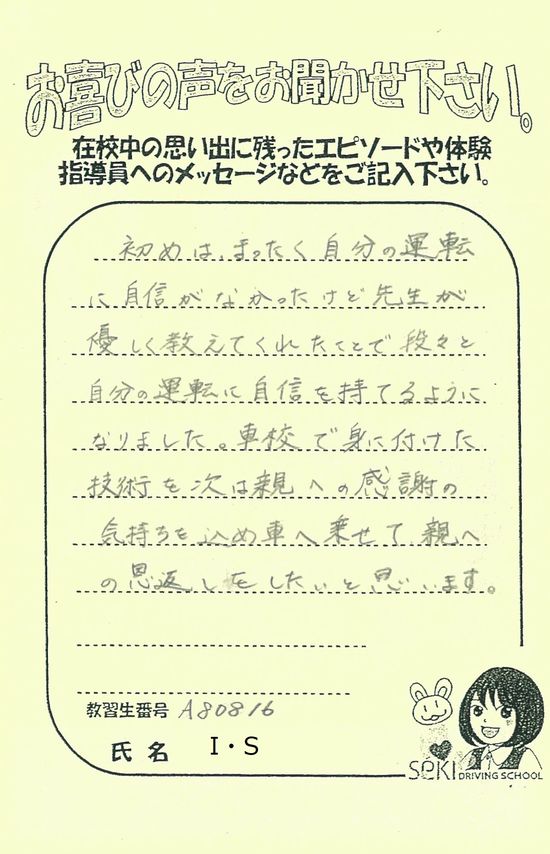 お喜びの声をお聞かせ下さい。
在校中の思い出に残ったエピソードや体験
指導員へのメッセージなどをご記入下さい。
初めは、まったく自分の運転
に自信がなかったけど先生が
優しく教えてくれたことで段々と
自分の運転に自信を持てるように
なりました。車校で身に付けた
技術を次は親への感謝の
気持ちを込め車へ乗せて親へ
の恩返しをしたいと思います。
教習生番号 A80816
氏名 I・S
SEKI DRIVING SCHOOL